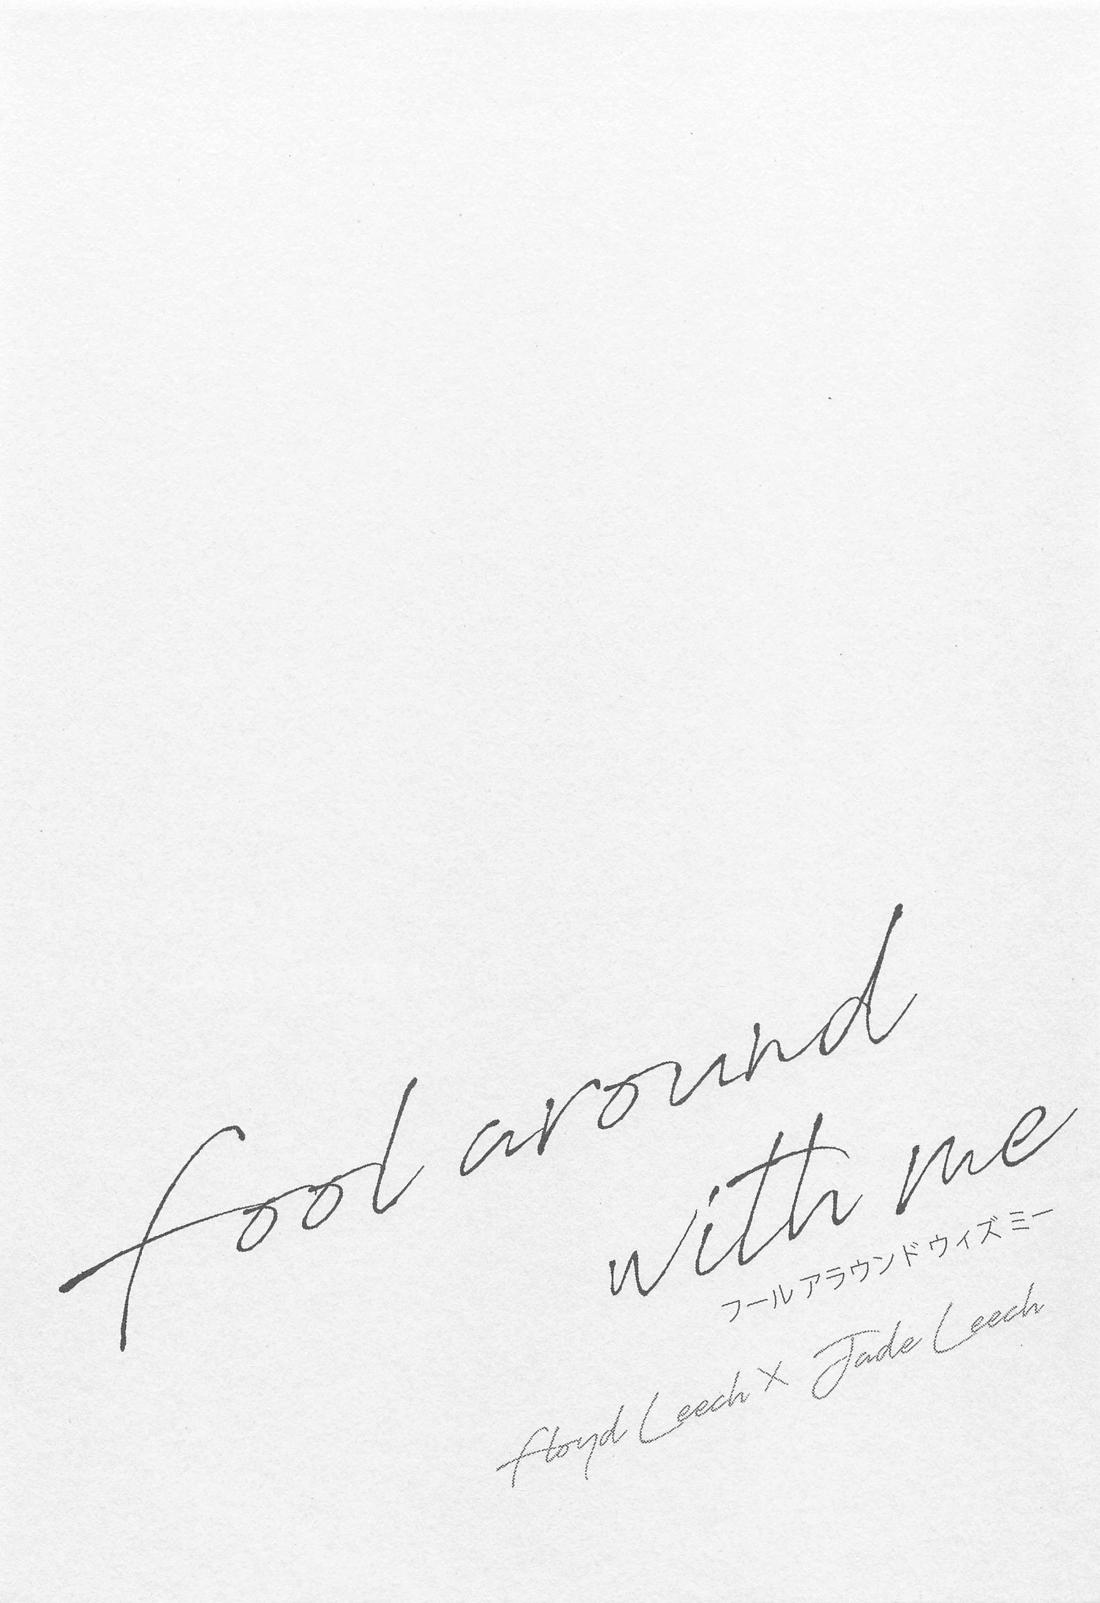 fool around
with me
フール アラウンド ウィズ ミー
Floyd Leech × Jade Leech